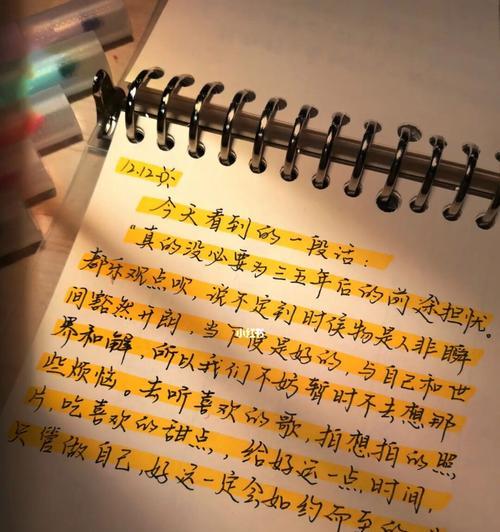 12.12
今天看到的一段话：
"真的没必要为三五年后的前途担忧。
都乐观点呗，说不定到时候物是人非瞬
间豁然开朗，当下便是好的，与自己和世
小红书
界和解，所以我们不妨暂时不去想那
些烦恼。去听喜欢的歌，拍想拍的照
片，吃喜欢的甜点，给好运一点时间，
只管做自己，好运一定会如约而至